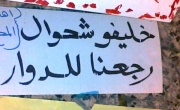 خليفو شحوال
رجعنا للدوار